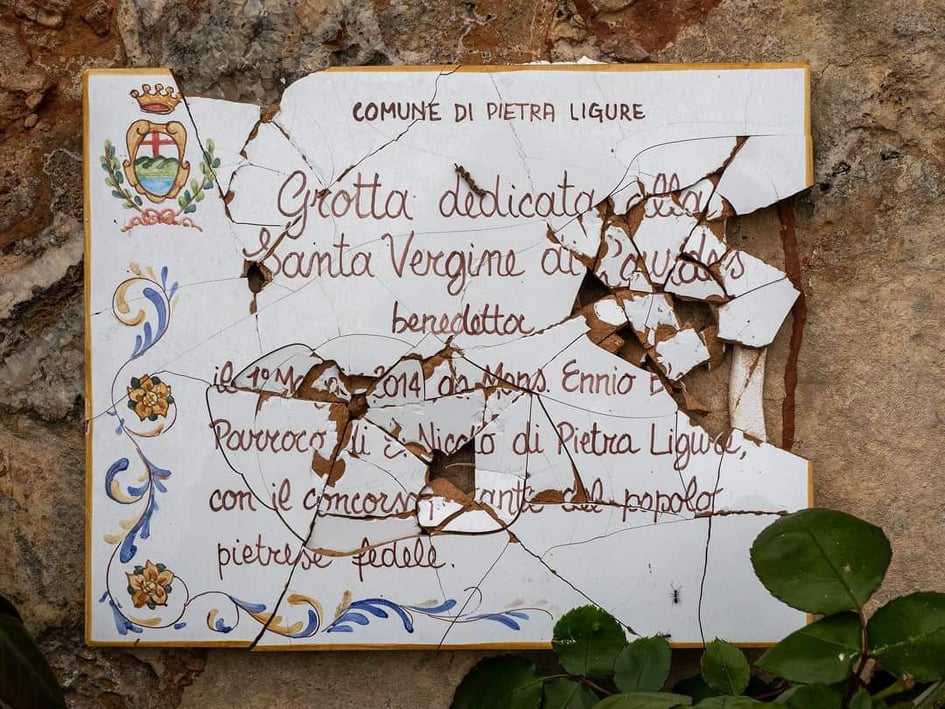 COMUNE DI PIETRA LIGURE
Grotta dedicata alla
Santa Vergine di Lourdes
benedetta
il 1° Ma 2014 da Mons. Ennio B
Parroco di S. Nicolò di Pietra Ligure,
con il concorso del popolo
pietrese fedele.